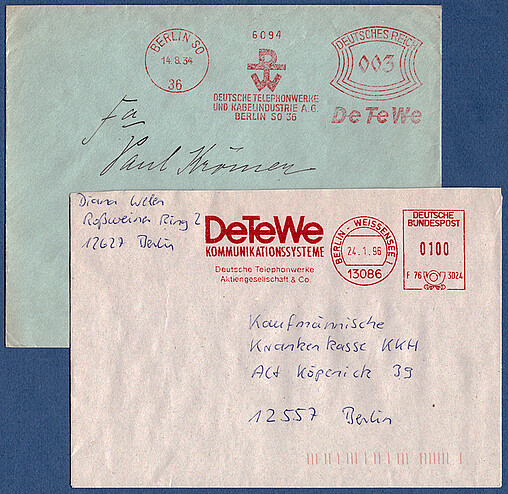 BERLIN SO
14.8.34
36
6094
DEUTSCHE TELEPHONWERKE
UND KABELINDUSTRIE A.G.
BERLIN SO 36
DEUTSCHES REICH
003
DeTeWe
Fa
Paul Krömer
Diana
Roßweiner Ring 2
12627 Berlin
DeTeWe
KOMMUNIKATIONSSYSTEME
Deutsche Telephonwerke
Aktiengesellschaft & Co.
BERLIN - WEISSENSEE 1
24.1.96
13086
DEUTSCHE
BUNDESPOST
0100
F 76 3024
Kaufmännische
Krankenkasse KKH
Alt Köpenick 39
12557 Berlin